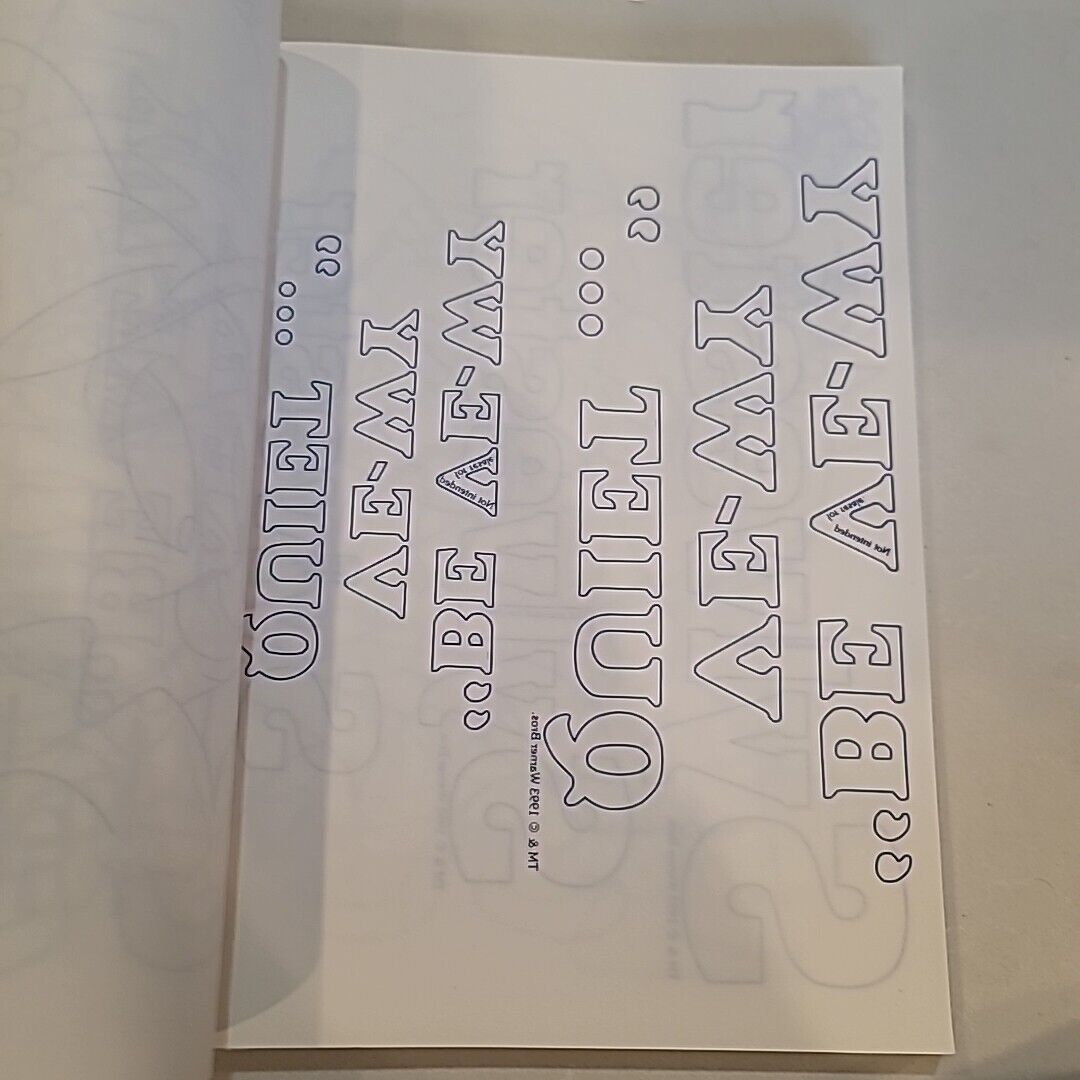 "BE VE-WY
Not intended
for resale
VE-WY
QUIET ..."
TM & © 1993 Warner Bros.
"BE VE-WY
Not intended
for resale
VE-WY
QUIET ..."